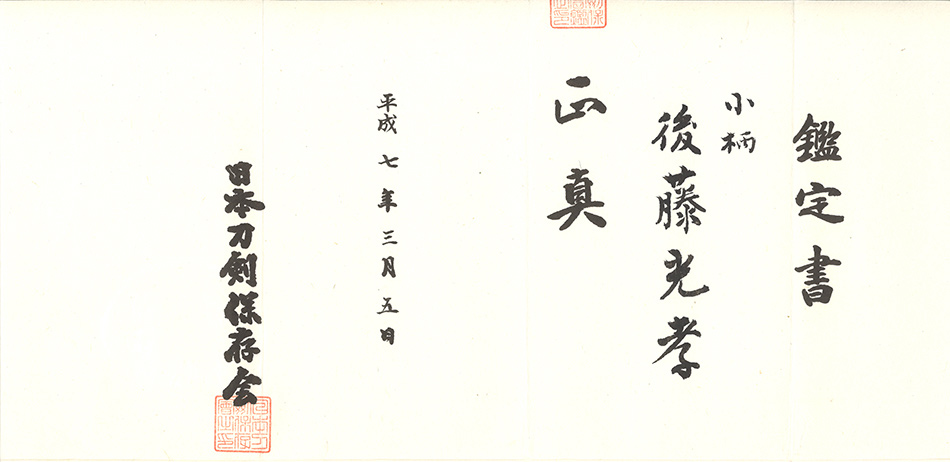 鑑定書
小柄
後藤光孝
正真
平成七年三月五日
日本刀剣保存会